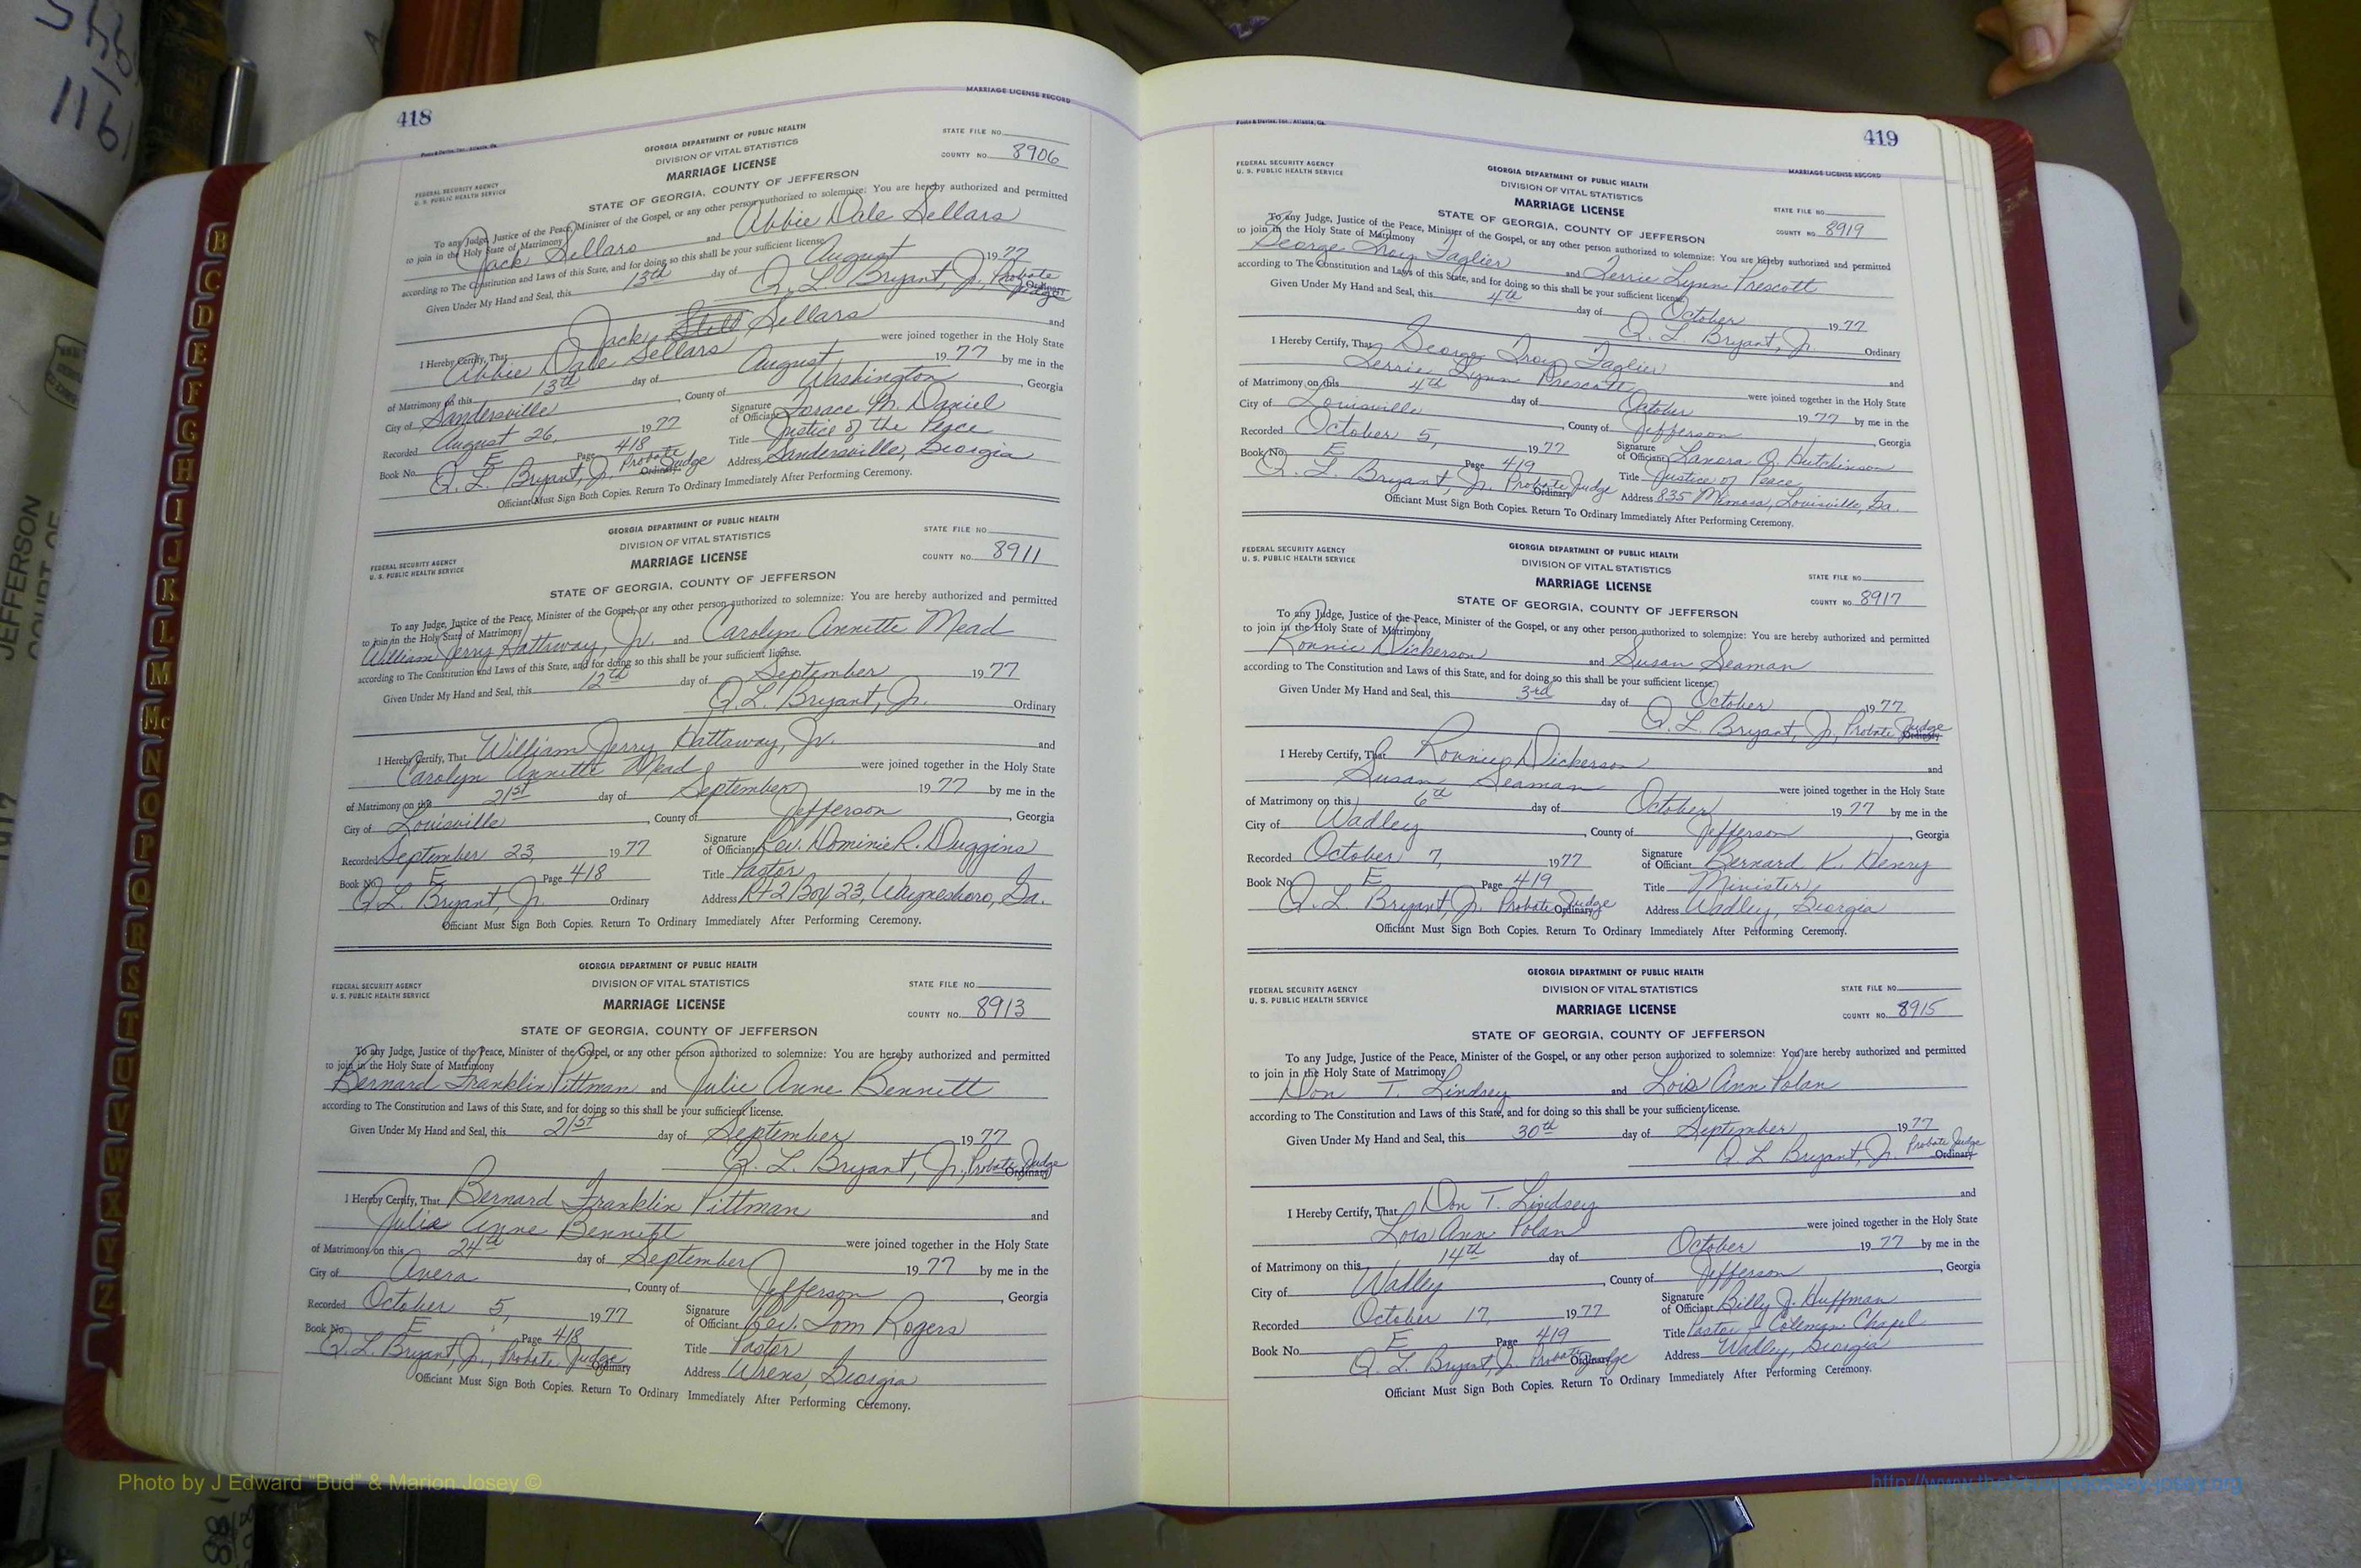 418
MARRIAGE LICENSE RECORD
GEORGIA DEPARTMENT OF PUBLIC HEALTH
DIVISION OF VITAL STATISTICS
MARRIAGE LICENSE
STATE FILE NO.
COUNTY NO. 8906
FEDERAL SECURITY AGENCY
U. S. PUBLIC HEALTH SERVICE
STATE OF GEORGIA, COUNTY OF JEFFERSON
To any Judge, Justice of the Peace, Minister of the Gospel, or any other person authorized to solemnize: You are hereby authorized and permitted
to join in the Holy State of Matrimony
Jack Sellars and Abbie Dale Sellars
according to The Constitution and Laws of this State, and for doing so this shall be your sufficient license.
Given Under My Hand and Seal, this 13th day of August 1977
Q. L. Bryant, Jr. Probate Judge Ordinary
I Hereby Certify, That Jack Still Sellars and
Abbie Dale Sellars were joined together in the Holy State
of Matrimony on this 13th day of August, 1977 by me in the
City of Sandersville, County of Washington, Georgia
Recorded August 26, 1977 Signature of Officiant Horace M. Daniel
Book No. E Page 418 Title Justice of the Peace
Q. L. Bryant, Jr. Probate Judge Ordinary Address Sandersville, Georgia
Officiant Must Sign Both Copies. Return To Ordinary Immediately After Performing Ceremony.
GEORGIA DEPARTMENT OF PUBLIC HEALTH
DIVISION OF VITAL STATISTICS
MARRIAGE LICENSE
STATE FILE NO.
COUNTY NO. 8911
FEDERAL SECURITY AGENCY
U. S. PUBLIC HEALTH SERVICE
STATE OF GEORGIA, COUNTY OF JEFFERSON
To any Judge, Justice of the Peace, Minister of the Gospel, or any other person authorized to solemnize: You are hereby authorized and permitted
to join in the Holy State of Matrimony
William Jerry Hattaway, Jr. and Carolyn Annette Mead
according to The Constitution and Laws of this State, and for doing so this shall be your sufficient license.
Given Under My Hand and Seal, this 12th day of September 1977
Q. L. Bryant, Jr. Ordinary
I Hereby Certify, That William Jerry Hattaway, Jr. and
Carolyn Annette Mead were joined together in the Holy State
of Matrimony on this 21st day of September 1977 by me in the
City of Louisville, County of Jefferson, Georgia
Recorded September 23, 1977 Signature of Officiant Rev. Dominic R. Duggins
Book No. E Page 418 Title Pastor
Q. L. Bryant, Jr. Ordinary Address Rt 2 Box 23, Waynesboro, Ga.
Officiant Must Sign Both Copies. Return To Ordinary Immediately After Performing Ceremony.
GEORGIA DEPARTMENT OF PUBLIC HEALTH
DIVISION OF VITAL STATISTICS
MARRIAGE LICENSE
STATE FILE NO.
COUNTY NO. 8913
FEDERAL SECURITY AGENCY
U. S. PUBLIC HEALTH SERVICE
STATE OF GEORGIA, COUNTY OF JEFFERSON
To any Judge, Justice of the Peace, Minister of the Gospel, or any other person authorized to solemnize: You are hereby authorized and permitted
to join in the Holy State of Matrimony
Bernard Franklin Pittman and Julie Anne Bennett
according to The Constitution and Laws of this State, and for doing so this shall be your sufficient license.
Given Under My Hand and Seal, this 21st day of September 1977
Q. L. Bryant, Jr., Probate Judge Ordinary
I Hereby Certify, That Bernard Franklin Pittman and
Julie Anne Bennett were joined together in the Holy State
of Matrimony on this 24th day of September 1977 by me in the
City of Avera, County of Jefferson, Georgia
Recorded October 5, 1977 Signature of Officiant Rev. Tom Rogers
Book No. E Page 418 Title Pastor
Q. L. Bryant, Jr., Probate Judge Ordinary Address Wrens, Georgia
Officiant Must Sign Both Copies. Return To Ordinary Immediately After Performing Ceremony.
419
MARRIAGE LICENSE RECORD
FEDERAL SECURITY AGENCY
U. S. PUBLIC HEALTH SERVICE
GEORGIA DEPARTMENT OF PUBLIC HEALTH
DIVISION OF VITAL STATISTICS
MARRIAGE LICENSE
STATE FILE NO.
COUNTY NO. 8919
STATE OF GEORGIA, COUNTY OF JEFFERSON
To any Judge, Justice of the Peace, Minister of the Gospel, or any other person authorized to solemnize: You are hereby authorized and permitted
to join in the Holy State of Matrimony
George Troy Taglier and Terrie Lynn Prescott
according to The Constitution and Laws of this State, and for doing so this shall be your sufficient license.
Given Under My Hand and Seal, this 4th day of October 1977
Q. L. Bryant, Jr. Ordinary
I Hereby Certify, That George Troy Taglier and
Terrie Lynn Prescott were joined together in the Holy State
of Matrimony on this 4th day of October 1977 by me in the
City of Louisville, County of Jefferson, Georgia
Recorded October 5, 1977 Signature of Officiant Lanora Q. Hutchinson
Book No. E Page 419 Title Justice of Peace
Q. L. Bryant, Jr. Probate Judge Ordinary Address 835 Mimosa, Louisville, Ga.
Officiant Must Sign Both Copies. Return To Ordinary Immediately After Performing Ceremony.
FEDERAL SECURITY AGENCY
U. S. PUBLIC HEALTH SERVICE
GEORGIA DEPARTMENT OF PUBLIC HEALTH
DIVISION OF VITAL STATISTICS
MARRIAGE LICENSE
STATE FILE NO.
COUNTY NO. 8917
STATE OF GEORGIA, COUNTY OF JEFFERSON
To any Judge, Justice of the Peace, Minister of the Gospel, or any other person authorized to solemnize: You are hereby authorized and permitted
to join in the Holy State of Matrimony
Ronnie Dickerson and Susan Seaman
according to The Constitution and Laws of this State, and for doing so this shall be your sufficient license.
Given Under My Hand and Seal, this 3rd day of October 1977
Q. L. Bryant, Jr, Probate Judge Ordinary
I Hereby Certify, That Ronnie Dickerson and
Susan Seaman were joined together in the Holy State
of Matrimony on this 6th day of October 1977 by me in the
City of Wadley, County of Jefferson, Georgia
Recorded October 7, 1977 Signature of Officiant Bernard K. Henry
Book No. E Page 419 Title Minister
Q. L. Bryant, Jr. Probate Judge Ordinary Address Wadley, Georgia
Officiant Must Sign Both Copies. Return To Ordinary Immediately After Performing Ceremony.
FEDERAL SECURITY AGENCY
U. S. PUBLIC HEALTH SERVICE
GEORGIA DEPARTMENT OF PUBLIC HEALTH
DIVISION OF VITAL STATISTICS
MARRIAGE LICENSE
STATE FILE NO.
COUNTY NO. 8915
STATE OF GEORGIA, COUNTY OF JEFFERSON
To any Judge, Justice of the Peace, Minister of the Gospel, or any other person authorized to solemnize: You are hereby authorized and permitted
to join in the Holy State of Matrimony
Don T. Lindsey and Lois Ann Polan
according to The Constitution and Laws of this State, and for doing so this shall be your sufficient license.
Given Under My Hand and Seal, this 30th day of September 1977
Q. L. Bryant, Jr. Probate Judge Ordinary
I Hereby Certify, That Don T. Lindsey and
Lois Ann Polan were joined together in the Holy State
of Matrimony on this 14th day of October 1977 by me in the
City of Wadley, County of Jefferson, Georgia
Recorded October 17, 1977 Signature of Officiant Billy J. Huffman
Book No. E Page 419 Title Pastor - Coleman Chapel
Q. L. Bryant, Jr. Probate Judge Ordinary Address Wadley, Georgia
Officiant Must Sign Both Copies. Return To Ordinary Immediately After Performing Ceremony.
B
C
D
E
F
G
H
I
J
K
L
M
Mc
N
O
P
Q
R
S
T
U
V
W
X
Y
Z
JEFFERSON
COURT OF
1161
Photo by J Edward "Bud" & Marion Josey ©